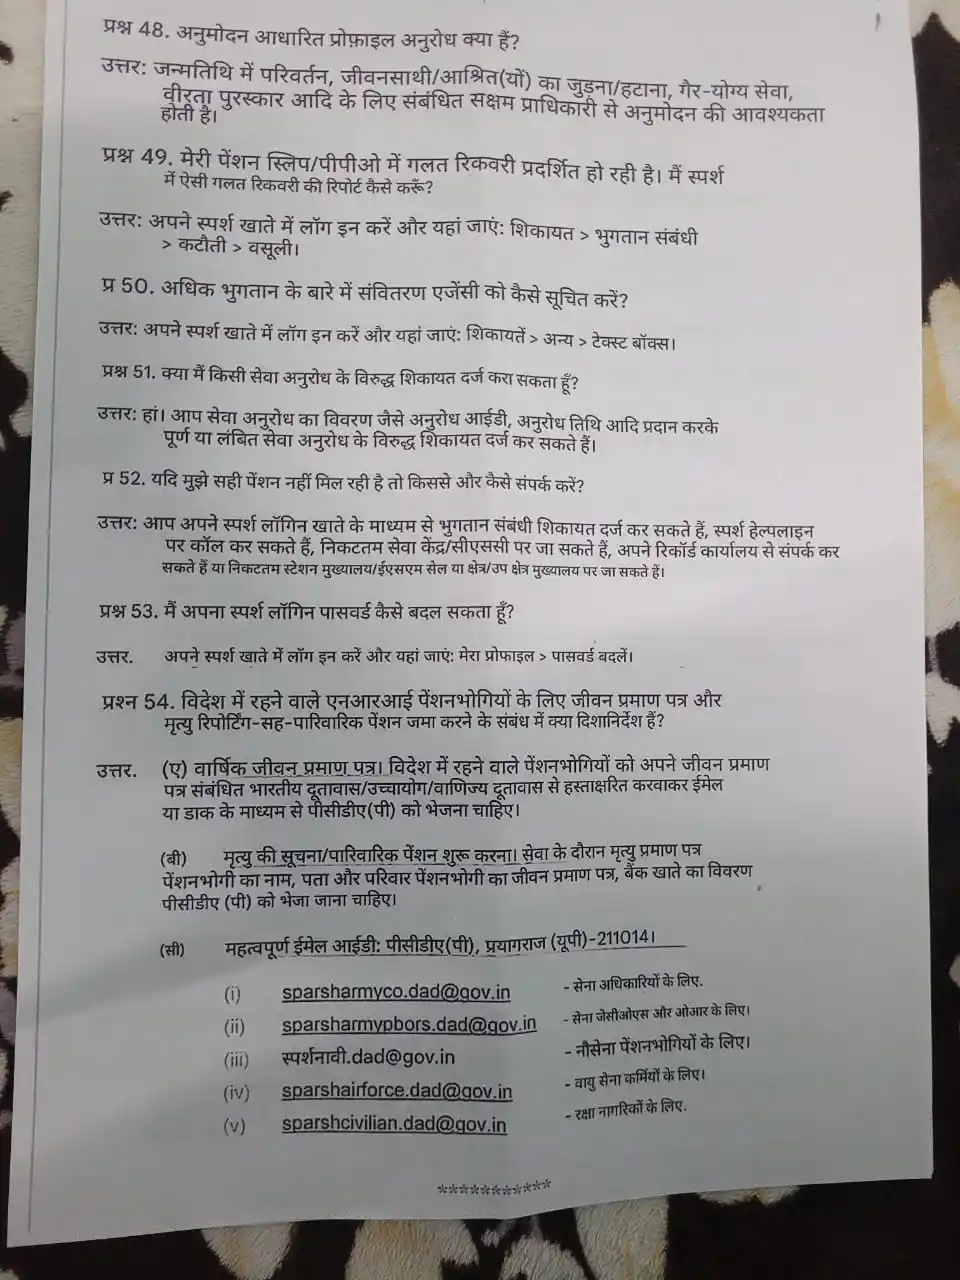 प्रश्न 48. अनुमोदन आधारित प्रोफ़ाइल अनुरोध क्या हैं?
उत्तर: जन्मतिथि में परिवर्तन, जीवनसाथी/आश्रित(यों) का जुड़ना/हटाना, गैर-योग्य सेवा,
वीरता पुरस्कार आदि के लिए संबंधित सक्षम प्राधिकारी से अनुमोदन की आवश्यकता
होती है।
प्रश्न 49. मेरी पेंशन स्लिप/पीपीओ में गलत रिकवरी प्रदर्शित हो रही है। मैं स्पर्श
में ऐसी गलत रिकवरी की रिपोर्ट कैसे करूँ?
उत्तर: अपने स्पर्श खाते में लॉग इन करें और यहां जाएं: शिकायत > भुगतान संबंधी
> कटौती > वसूली।
प्र 50. अधिक भुगतान के बारे में संवितरण एजेंसी को कैसे सूचित करें?
उत्तर: अपने स्पर्श खाते में लॉग इन करें और यहां जाएं: शिकायतें > अन्य > टेक्स्ट बॉक्स।
प्रश्न 51. क्या मैं किसी सेवा अनुरोध के विरुद्ध शिकायत दर्ज करा सकता हूँ?
उत्तर: हां। आप सेवा अनुरोध का विवरण जैसे अनुरोध आईडी, अनुरोध तिथि आदि प्रदान करके
पूर्ण या लंबित सेवा अनुरोध के विरुद्ध शिकायत दर्ज कर सकते हैं।
प्र 52. यदि मुझे सही पेंशन नहीं मिल रही है तो किससे और कैसे संपर्क करें?
उत्तर: आप अपने स्पर्श लॉगिन खाते के माध्यम से भुगतान संबंधी शिकायत दर्ज कर सकते हैं, स्पर्श हेल्पलाइन
पर कॉल कर सकते हैं, निकटतम सेवा केंद्र/सीएससी पर जा सकते हैं, अपने रिकॉर्ड कार्यालय से संपर्क कर
सकते हैं या निकटतम स्टेशन मुख्यालय/ईएसएम सेल या क्षेत्र/उप क्षेत्र मुख्यालय पर जा सकते हैं।
प्रश्न 53. मैं अपना स्पर्श लॉगिन पासवर्ड कैसे बदल सकता हूँ?
उत्तर. अपने स्पर्श खाते में लॉग इन करें और यहां जाएं: मेरा प्रोफाइल > पासवर्ड बदलें।
प्रश्न 54. विदेश में रहने वाले एनआरआई पेंशनभोगियों के लिए जीवन प्रमाण पत्र और
मृत्यु रिपोर्टिंग-सह-पारिवारिक पेंशन जमा करने के संबंध में क्या दिशानिर्देश हैं?
उत्तर. (ए) वार्षिक जीवन प्रमाण पत्र। विदेश में रहने वाले पेंशनभोगियों को अपने जीवन प्रमाण
पत्र संबंधित भारतीय दूतावास/उच्चायोग/वाणिज्य दूतावास से हस्ताक्षरित करवाकर ईमेल
या डाक के माध्यम से पीसीडीए(पी) को भेजना चाहिए।
(बी) मृत्यु की सूचना/पारिवारिक पेंशन शुरू करना। सेवा के दौरान मृत्यु प्रमाण पत्र
पेंशनभोगी का नाम, पता और परिवार पेंशनभोगी का जीवन प्रमाण पत्र, बैंक खाते का विवरण
पीसीडीए (पी) को भेजा जाना चाहिए।
(सी) महत्वपूर्ण ईमेल आईडी: पीसीडीए(पी), प्रयागराज (यूपी)-211014।
(i) sparsharmyco.dad@gov.in - सेना अधिकारियों के लिए.
(ii) sparsharmypbors.dad@gov.in - सेना जेसीओएस और ओआर के लिए।
(iii) स्पर्शनावी.dad@gov.in - नौसेना पेंशनभोगियों के लिए।
(iv) sparshairforce.dad@gov.in - वायु सेना कर्मियों के लिए।
(v) sparshcivilian.dad@gov.in - रक्षा नागरिकों के लिए.
***********